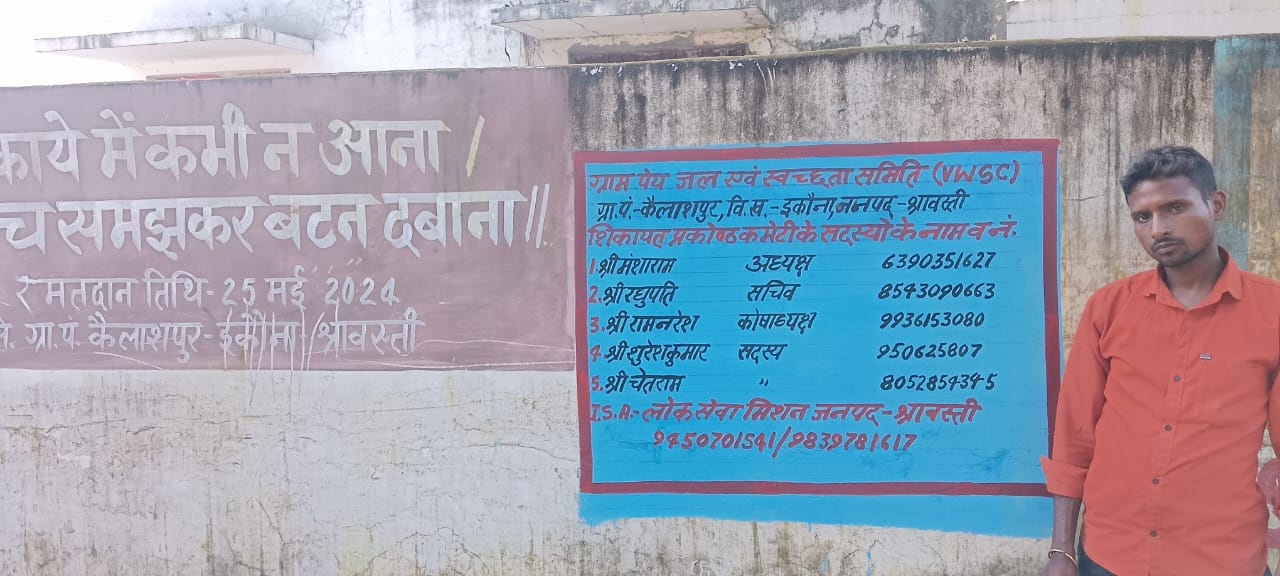 काये में कभी न आना ।
च समझकर बटन दबाना॥
मतदान तिथि- 25 मई 2024
ग्रा.पं. कैलाशपुर-इकौना/श्रावस्ती
ग्राम पेय जल एवं स्वच्छता समिति (VWSC)
ग्रा.पं.-कैलाशपुर, वि.ख.-इकौना, जनपद-श्रावस्ती
शिकायत प्रकोष्ठ कमेटी के सदस्यौ के नाम व नं.
1. श्री मंशाराम अध्यक्ष 6390351627
2. श्री रघुपति सचिव 8543090663
3. श्री रामनरेश कोषाध्यक्ष 9936153080
4. श्री शुरेश कुमार सदस्य 950625807
5. श्री चेतराम " 8052854345
I.S.A.- लोक सेवा मिशन जनपद-श्रावस्ती
9450701541/9839781617